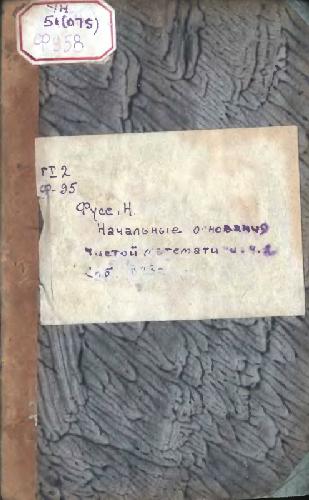 УН
51(075)
Ф958
гI 2
Ф-95
Фусс, Н.
Начальные основания
чистой математики. ч. 2
Спб.